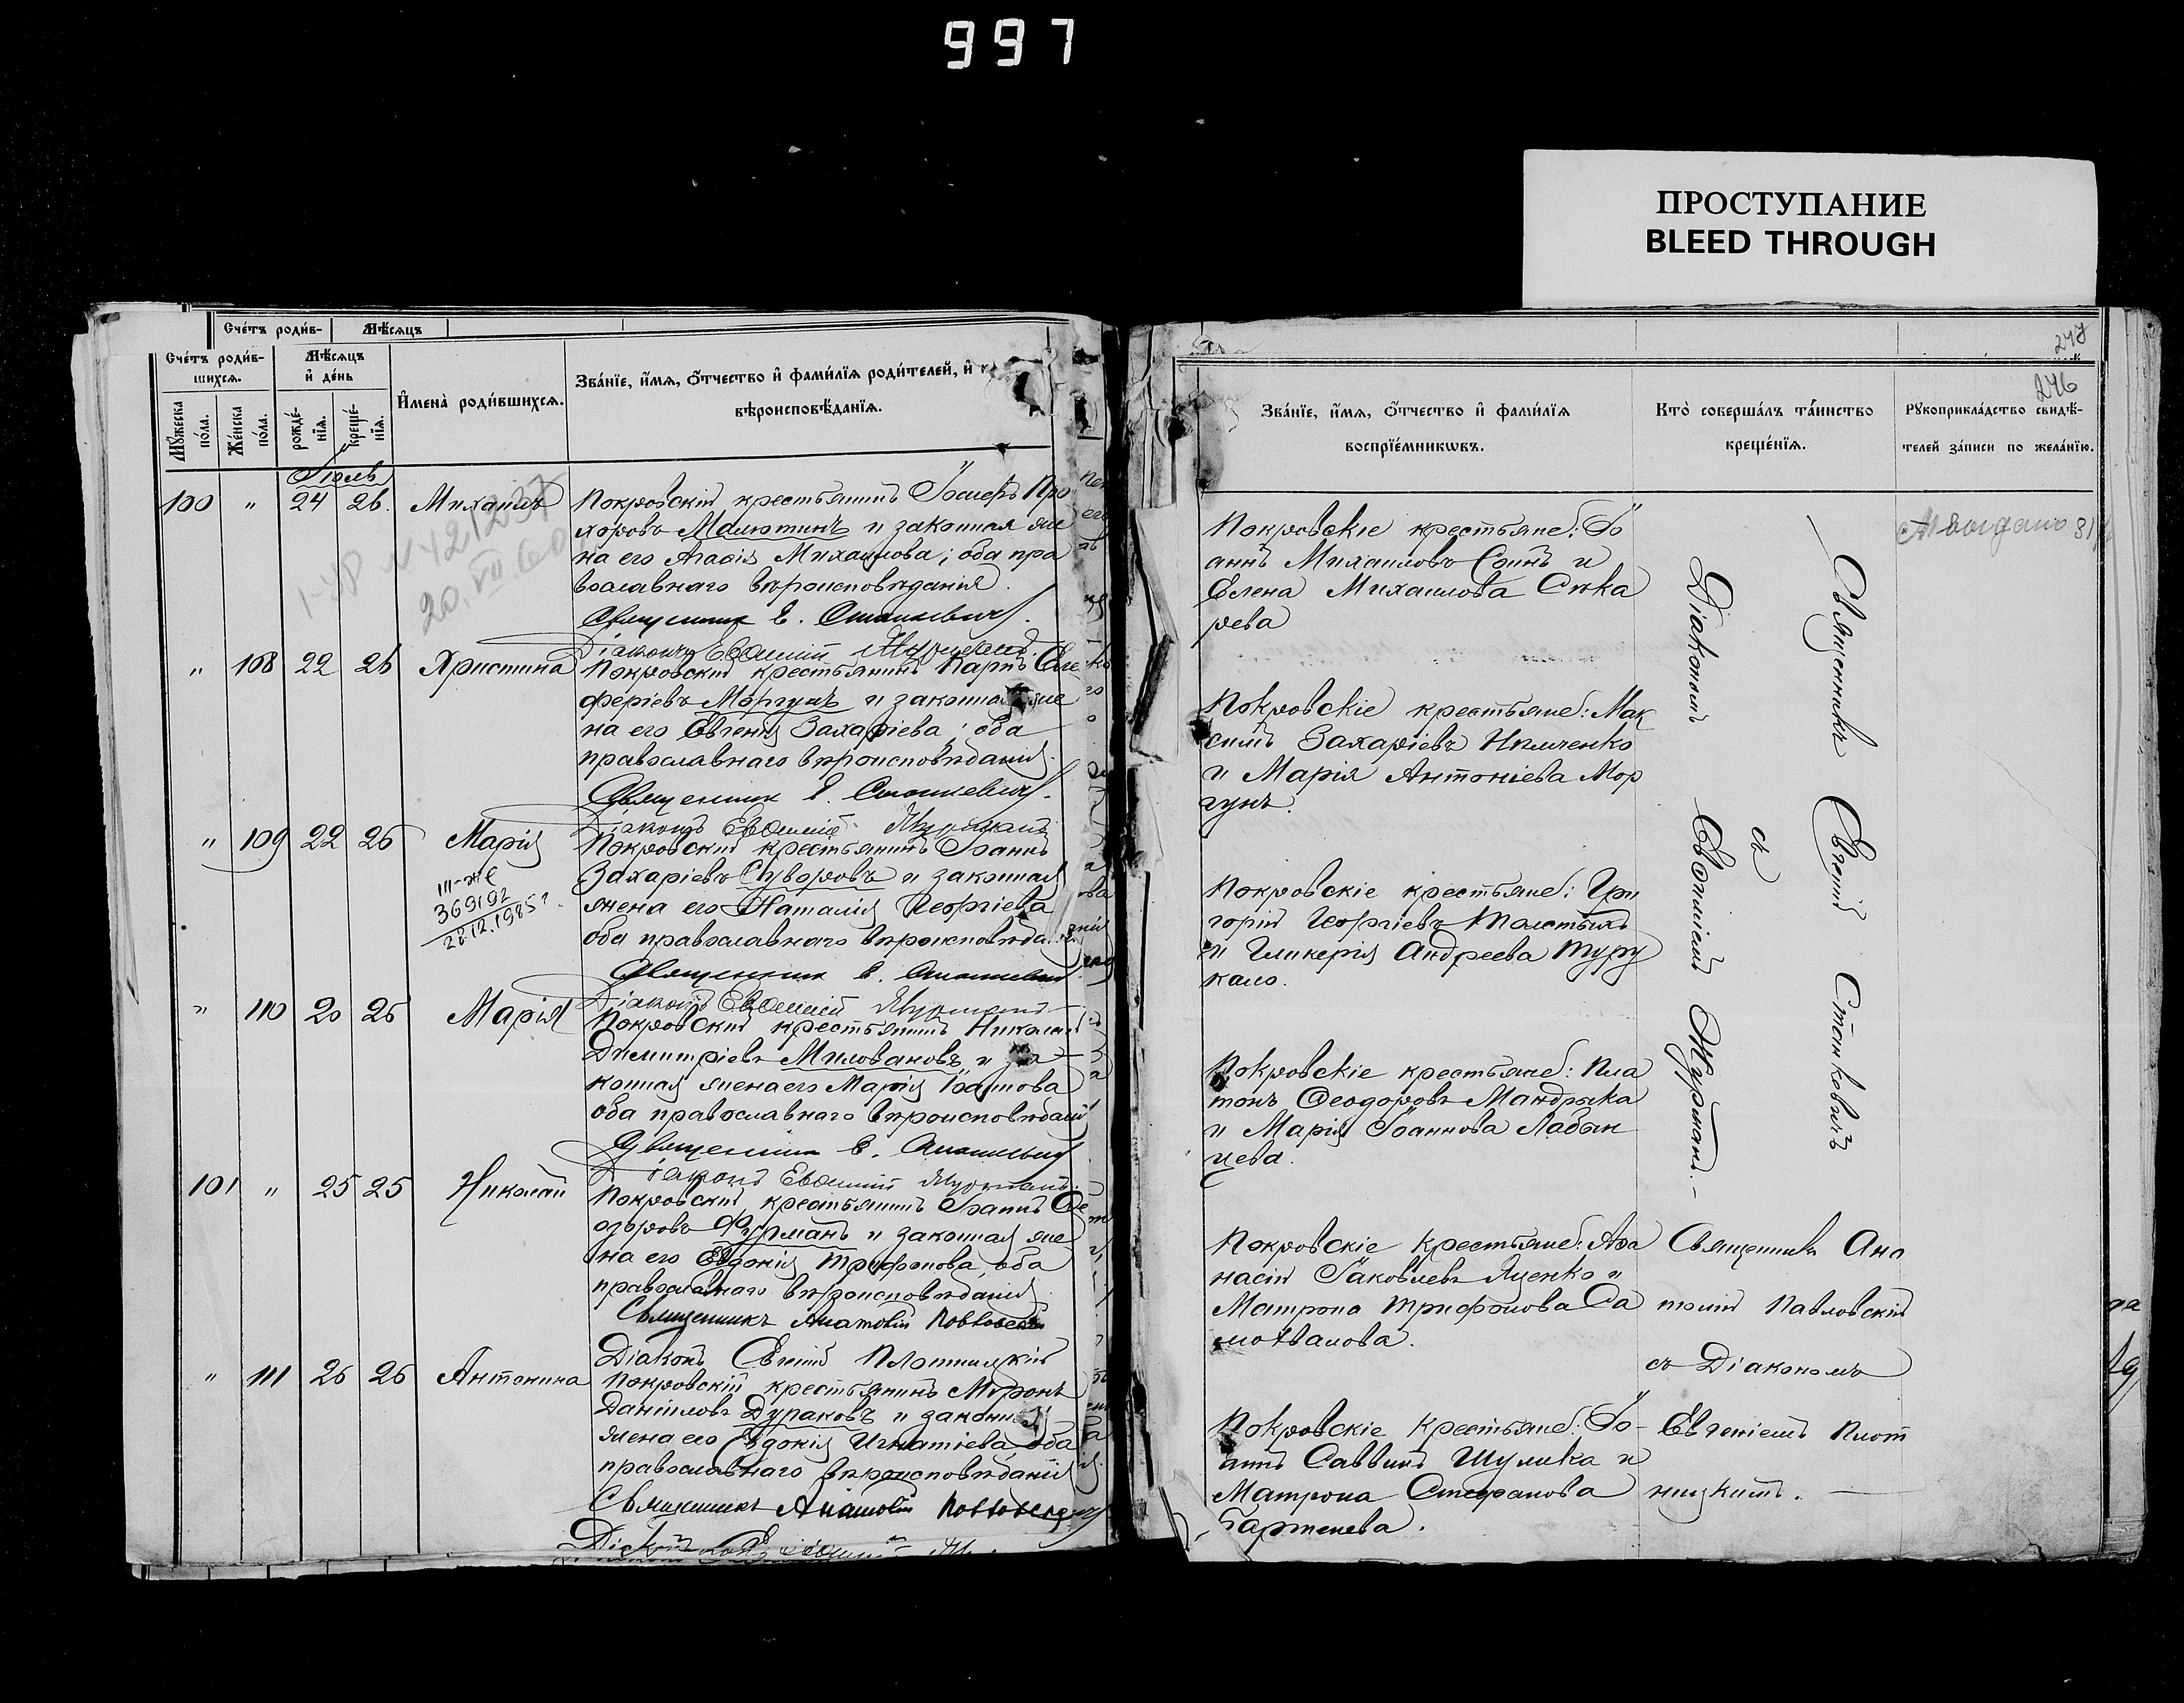 997
ПРОСТУПАНИЕ
BLEED THROUGH
Счетъ родив-
Мѣсяцъ
Счетъ родив-
шихся.
Мѣсяцъ
и день
Мужеска пола.
Женска пола.
рожде-
нія.
креще-
нія.
Имена родившихся.
Званіе, имя, отчество и фамилія родителей, и
вѣроисповѣданія.
Іюль
100 " 24 26. Михаилъ
Покровскій крестьянинъ Іосифъ Про
хоровъ Малютинъ и законная же
на его Агафія Михайлова; оба пра
вославнаго вѣроисповѣданія.
Священникъ Е. Стаикевичъ.
Діаконъ Евѳимій Журманъ.
20.VII.60
" 108 22 26 Христина
Покровскій крестьянинъ Карпъ Еле
феріевъ Моргунъ и законная же
на его Евгенія Захаріева; оба
православнаго вѣроисповѣданія.
Священникъ Е. Стаикевичъ.
Діаконъ Евѳимій Журманъ
" 109 22 26 Марія
III-же
369192
28.12.1985г.
Покровскій крестьянинъ Іоаннъ
Захаріевъ Суворовъ и законная
жена его Наталія Георгіева
оба православнаго вѣроисповѣда
Священникъ Е. Стаикевичъ.
Діаконъ Евѳимій Журманъ
" 110 20 26 Марія
Покровскій крестьянинъ Николай
Димитріевъ Миловановъ и за
конная жена его Марія
оба православнаго вѣроисповѣданія
Священникъ Е. Стаикевичъ
Діаконъ Евѳимій Журманъ.
101 " 25 25 Николай
Покровскій крестьянинъ Іоаннъ Ѳе
одоровъ Фурманъ и законная же
на его Евдокія Трифонова, оба
православнаго вѣроисповѣданія.
Священникъ Анатолій Павловскій
Діаконъ Евгеній Плотницкій
" 111 26 26 Антонина
Покровскій крестьянинъ Миронъ
Даніиловъ Дураковъ и законная
жена его Евдокія Игнатіева, оба
православнаго вѣроисповѣданія
Священникъ Анатолій Павловскій
247
246
Званіе, имя, отчество и фамилія
воспріемниковъ.
Кто совершалъ таинство
крещенія.
Рукоприкладство свидѣ-
телей записи по желанію.
Покровскіе крестьяне: Іо
аннъ Михаиловъ Соинъ и
Елена Михаилова Сѣка
рева
Покровскіе крестьяне: Мак
симъ Захаріевъ Нѣмченко
и Марія Антоніева Мор
гунъ.
Покровскіе крестьяне: Гри
горій Георгіевъ Толстыхъ
и Гликерія Андреева Туру
кало.
Покровскіе крестьяне: Пла
тонъ Ѳеодоровъ Мандрыка
и Марія Іоаннова Лабын
цева.
Священникъ Евгеній Стаикевичъ
съ
Діакономъ Евѳиміемъ Журманъ.
Покровскіе крестьяне: Аѳа
насій Іаковлевъ Яценко и
Матрона Трифонова Са
мохвалова.
Священникъ Ана
толій Павловскій
съ Діакономъ
Евгеніемъ Плот
ницкимъ.
Покровскіе крестьяне: Іо-
аннъ Саввинъ Шулика и
Матрона Стефанова
Бартенева.